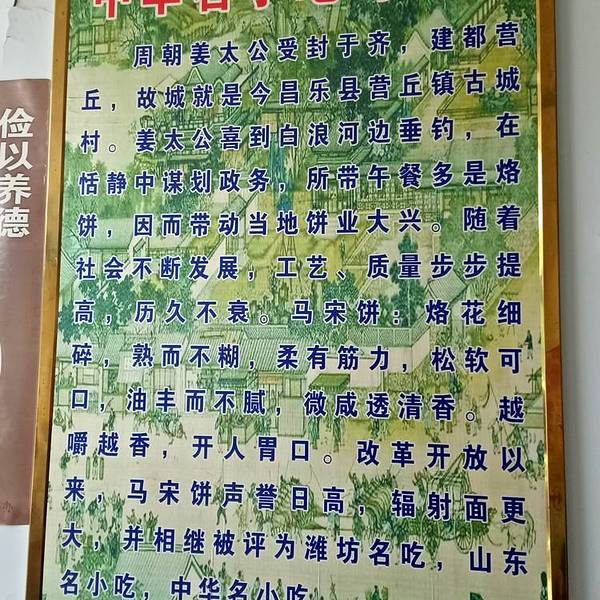 中华名小吃
周朝姜太公受封于齐，建都营
丘，故城就是今昌乐县营丘镇古城
村。姜太公喜到白浪河边垂钓，在
恬静中谋划政务，所带午餐多是烙
饼，因而带动当地饼业大兴。随着
社会不断发展，工艺、质量步步提
高，历久不衰。马宋饼：烙花细
碎，熟而不糊，柔有筋力，松软可
口，油丰而不腻，微咸透清香。越
嚼越香，开人胃口。改革开放以
来，马宋饼声誉日高，辐射面更
大，并相继被评为潍坊名吃，山东
名小吃，中华名小吃。
俭以养德